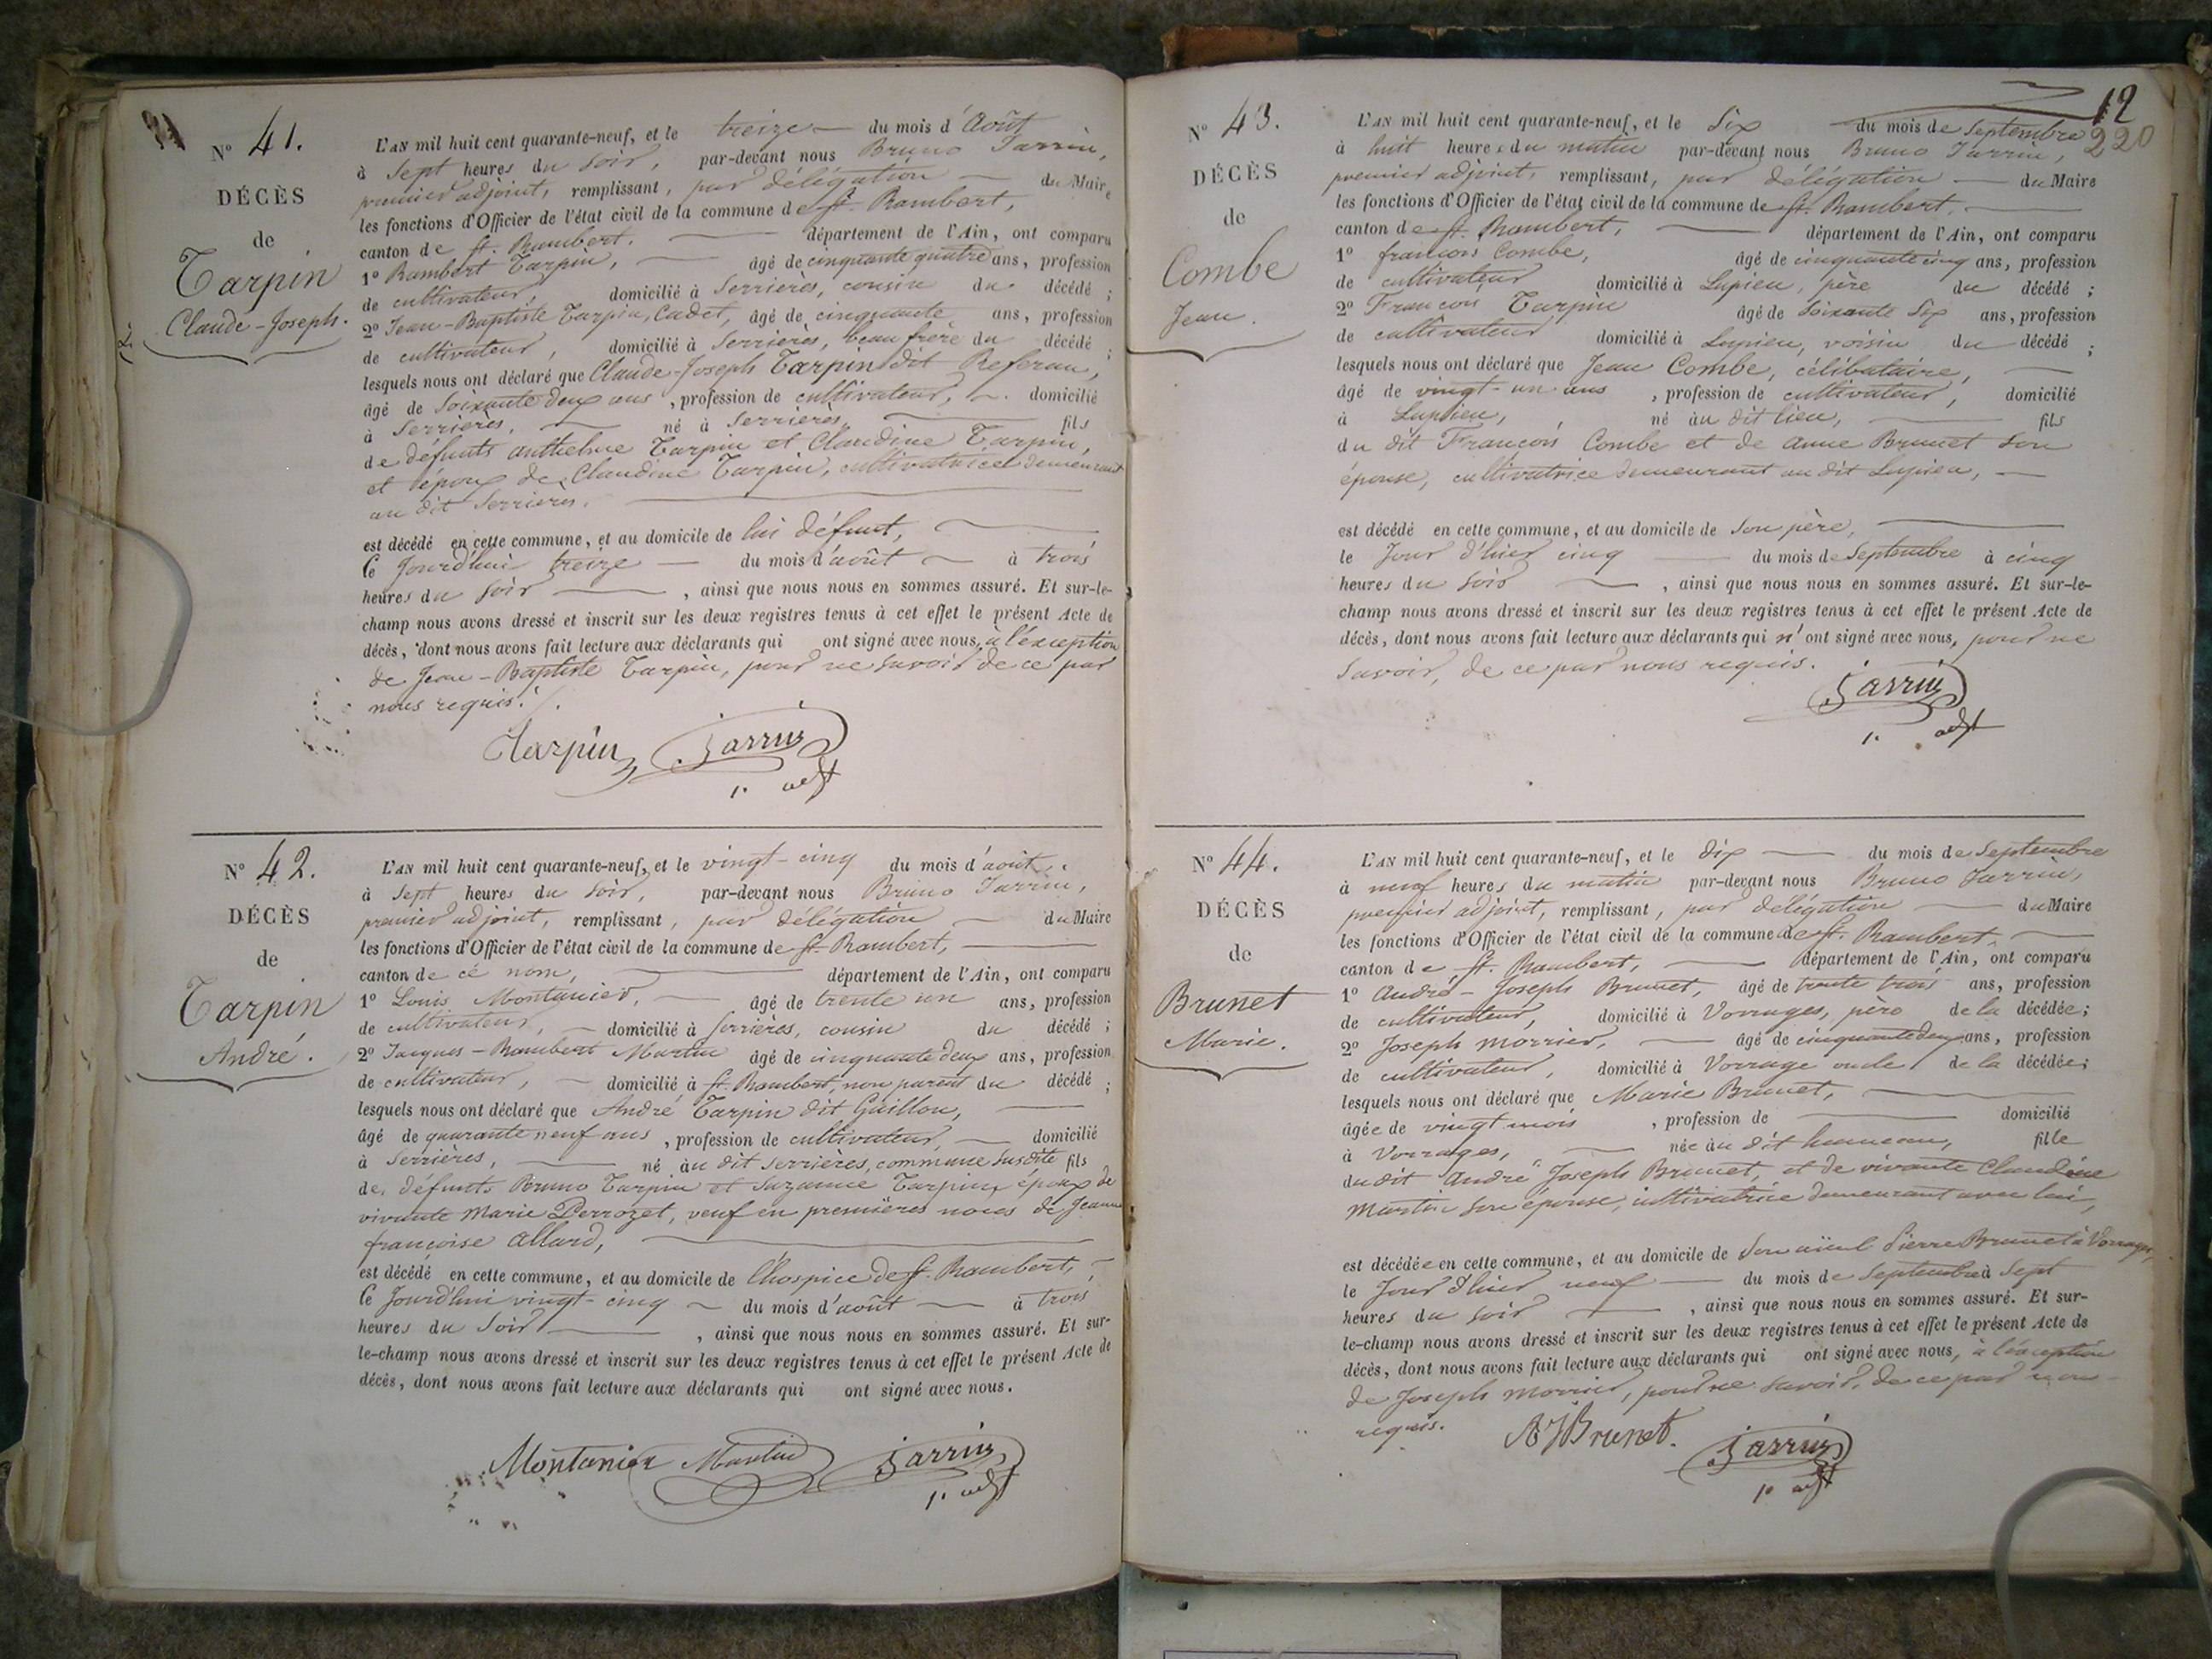 N° 41.
DÉCÈS
de
Tarpin
Claude-Joseph.
L'AN mil huit cent quarante-neuf, et le treize du mois d'Août
à Sept heures du Soir, par-devant nous Bruno Jarrin,
premier adjoint, remplissant, par délégation du Maire
les fonctions d'Officier de l'état civil de la commune de St. Rambert,
canton de St. Rambert. département de l'Ain, ont comparu
1° Rambert Tarpin, âgé de cinquante quatre ans, profession
de cultivateur, domicilié à Serrières, cousin du décédé ;
2° Jean-Baptiste Tarpin, Cadet, âgé de cinquante ans, profession
de cultivateur, domicilié à Serrières, beau frère du décédé ;
lesquels nous ont déclaré que Claude-Joseph Tarpin dit
âgé de Soixante deux ans, profession de cultivateur, domicilié
à Serrières, né à Serrières, fils
de défunts anthelme Tarpin et Claudine Tarpin,
et époux de Claudine Tarpin, cultivatrice demeurant
au dit Serrières.
est décédé en cette commune, et au domicile de lui défunt,
le Jourd'hui treize du mois d'août à trois
heures du soir, ainsi que nous nous en sommes assuré. Et sur-le-
champ nous avons dressé et inscrit sur les deux registres tenus à cet effet le présent Acte de
décès, dont nous avons fait lecture aux déclarants qui ont signé avec nous, à l'exception
de Jean-Baptiste Tarpin, pour ne savoir de ce par
nous requis.
Tarpin Jarrin
1er adjt
N° 42.
DÉCÈS
de
Tarpin
André.
L'AN mil huit cent quarante-neuf, et le vingt-cinq du mois d'août,
à Sept heures du Soir, par-devant nous Bruno Jarrin,
premier adjoint, remplissant, par délégation du Maire
les fonctions d'Officier de l'état civil de la commune de St. Rambert,
canton de ce nom, département de l'Ain, ont comparu
1° Louis Montanier, âgé de trente un ans, profession
de cultivateur, domicilié à Serrières, cousin du décédé ;
2° Jacques-Rambert Martin âgé de cinquante deux ans, profession
de cultivateur, domicilié à St. Rambert, non parent du décédé ;
lesquels nous ont déclaré que André Tarpin dit Guillon,
âgé de quarante neuf ans, profession de cultivateur, domicilié
à Serrières, né au dit Serrières, commune susdite fils
de, défunts Bruno Tarpin et Suzanne Tarpin, époux de
vivante Marie Perrozet, veuf en premières noces de Jeanne
françoise allard,
est décédé en cette commune, et au domicile de l'hospice de St. Rambert,
le Jourd'hui vingt-cinq du mois d'août à trois
heures du Soir, ainsi que nous nous en sommes assuré. Et sur-
le-champ nous avons dressé et inscrit sur les deux registres tenus à cet effet le présent Acte de
décès, dont nous avons fait lecture aux déclarants qui ont signé avec nous.
Montanier Martin Jarrin
1er adjt
12
220
N° 43.
DÉCÈS
de
Combe
Jean.
L'AN mil huit cent quarante-neuf, et le Six du mois de Septembre
à huit heures du matin par-devant nous Bruno Jarrin,
premier adjoint, remplissant, par délégation du Maire
les fonctions d'Officier de l'état civil de la commune de St. Rambert,
canton de St. Rambert, département de l'Ain, ont comparu
1° françois Combe, âgé de cinquante cinq ans, profession
de cultivateur domicilié à Lupieu, père du décédé ;
2° François Tarpin âgé de Soixante Six ans, profession
de cultivateur domicilié à Lupieu, voisin du décédé ;
lesquels nous ont déclaré que Jean Combe, célibataire,
âgé de vingt-un ans, profession de cultivateur, domicilié
à Lupieu, né au dit lieu, fils
du dit François Combe et de anne Brunet son
épouse, cultivatrice demeurant au dit Lupieu,
est décédé en cette commune, et au domicile de Son père,
le Jour d'hier cinq du mois de Septembre à cinq
heures du Soir, ainsi que nous nous en sommes assuré. Et sur-le-
champ nous avons dressé et inscrit sur les deux registres tenus à cet effet le présent Acte de
décès, dont nous avons fait lecture aux déclarants qui n'ont signé avec nous, pour ne
Savoir, de ce par nous requis.
Jarrin
1er adjt
N° 44.
DÉCÈS
de
Brunet
Marie.
L'AN mil huit cent quarante-neuf, et le dix du mois de Septembre
à neuf heures du matin par-devant nous Bruno Jarrin,
premier adjoint, remplissant, par délégation du Maire
les fonctions d'Officier de l'état civil de la commune de St. Rambert,
canton de St. Rambert, département de l'Ain, ont comparu
1° André-Joseph Brunet, âgé de trente trois ans, profession
de cultivateur, domicilié à Vorrages, père de la décédée ;
2° Joseph morrier, âgé de cinquante deux ans, profession
de cultivateur, domicilié à Vorrage oncle de la décédée ;
lesquels nous ont déclaré que Marie Brunet,
âgée de vingt mois, profession de domicilié
à Vorrages, née au dit hameau, fille
du dit André Joseph Brunet, et de vivante Claudine
Martin son épouse, cultivatrice demeurant avec lui,
est décédée en cette commune, et au domicile de Son aïeul Pierre Brunet à Vorrages,
le Jour d'hier neuf du mois de Septembre à Sept
heures du soir, ainsi que nous nous en sommes assuré. Et sur-
le-champ nous avons dressé et inscrit sur les deux registres tenus à cet effet le présent Acte de
décès, dont nous avons fait lecture aux déclarants qui ont signé avec nous, à l'exception
de Joseph morrier, pour ne savoir, de ce par nous
requis.
AJBrunet. Jarrin
1er adjt